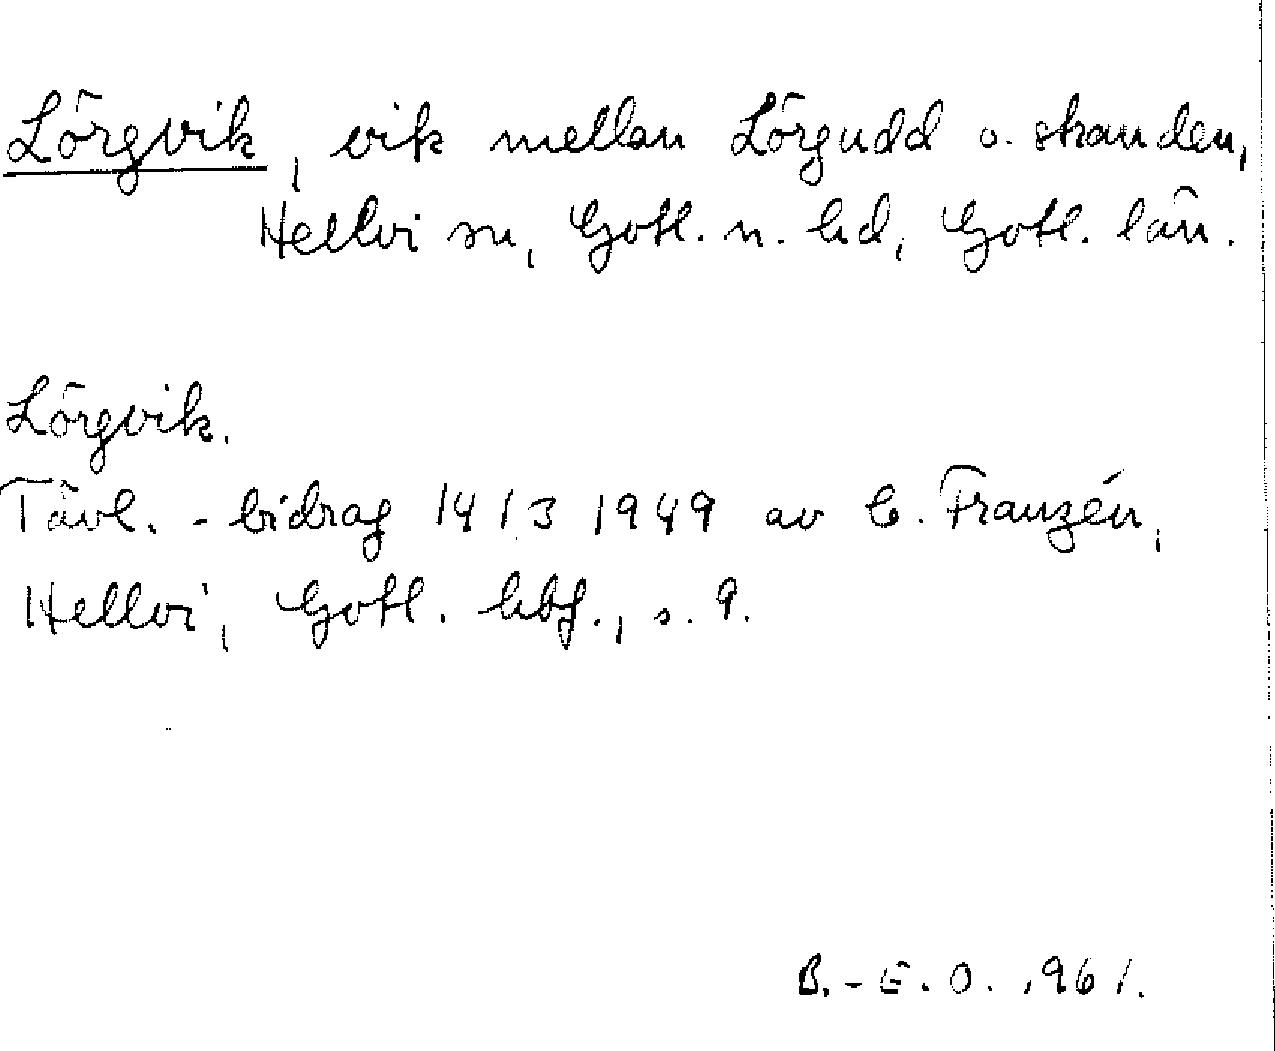 Lörgvik, vik mellan Lörgudd o. stranden,
Hellvi sn, Gotl. n. hd, Gotl. län.
Lörgvik.
Tävl.-bidrag 14/3 1949 av C. Franzén,
Hellvi, Gotl. hbf., s. 9.
B.-E. O. 1961.